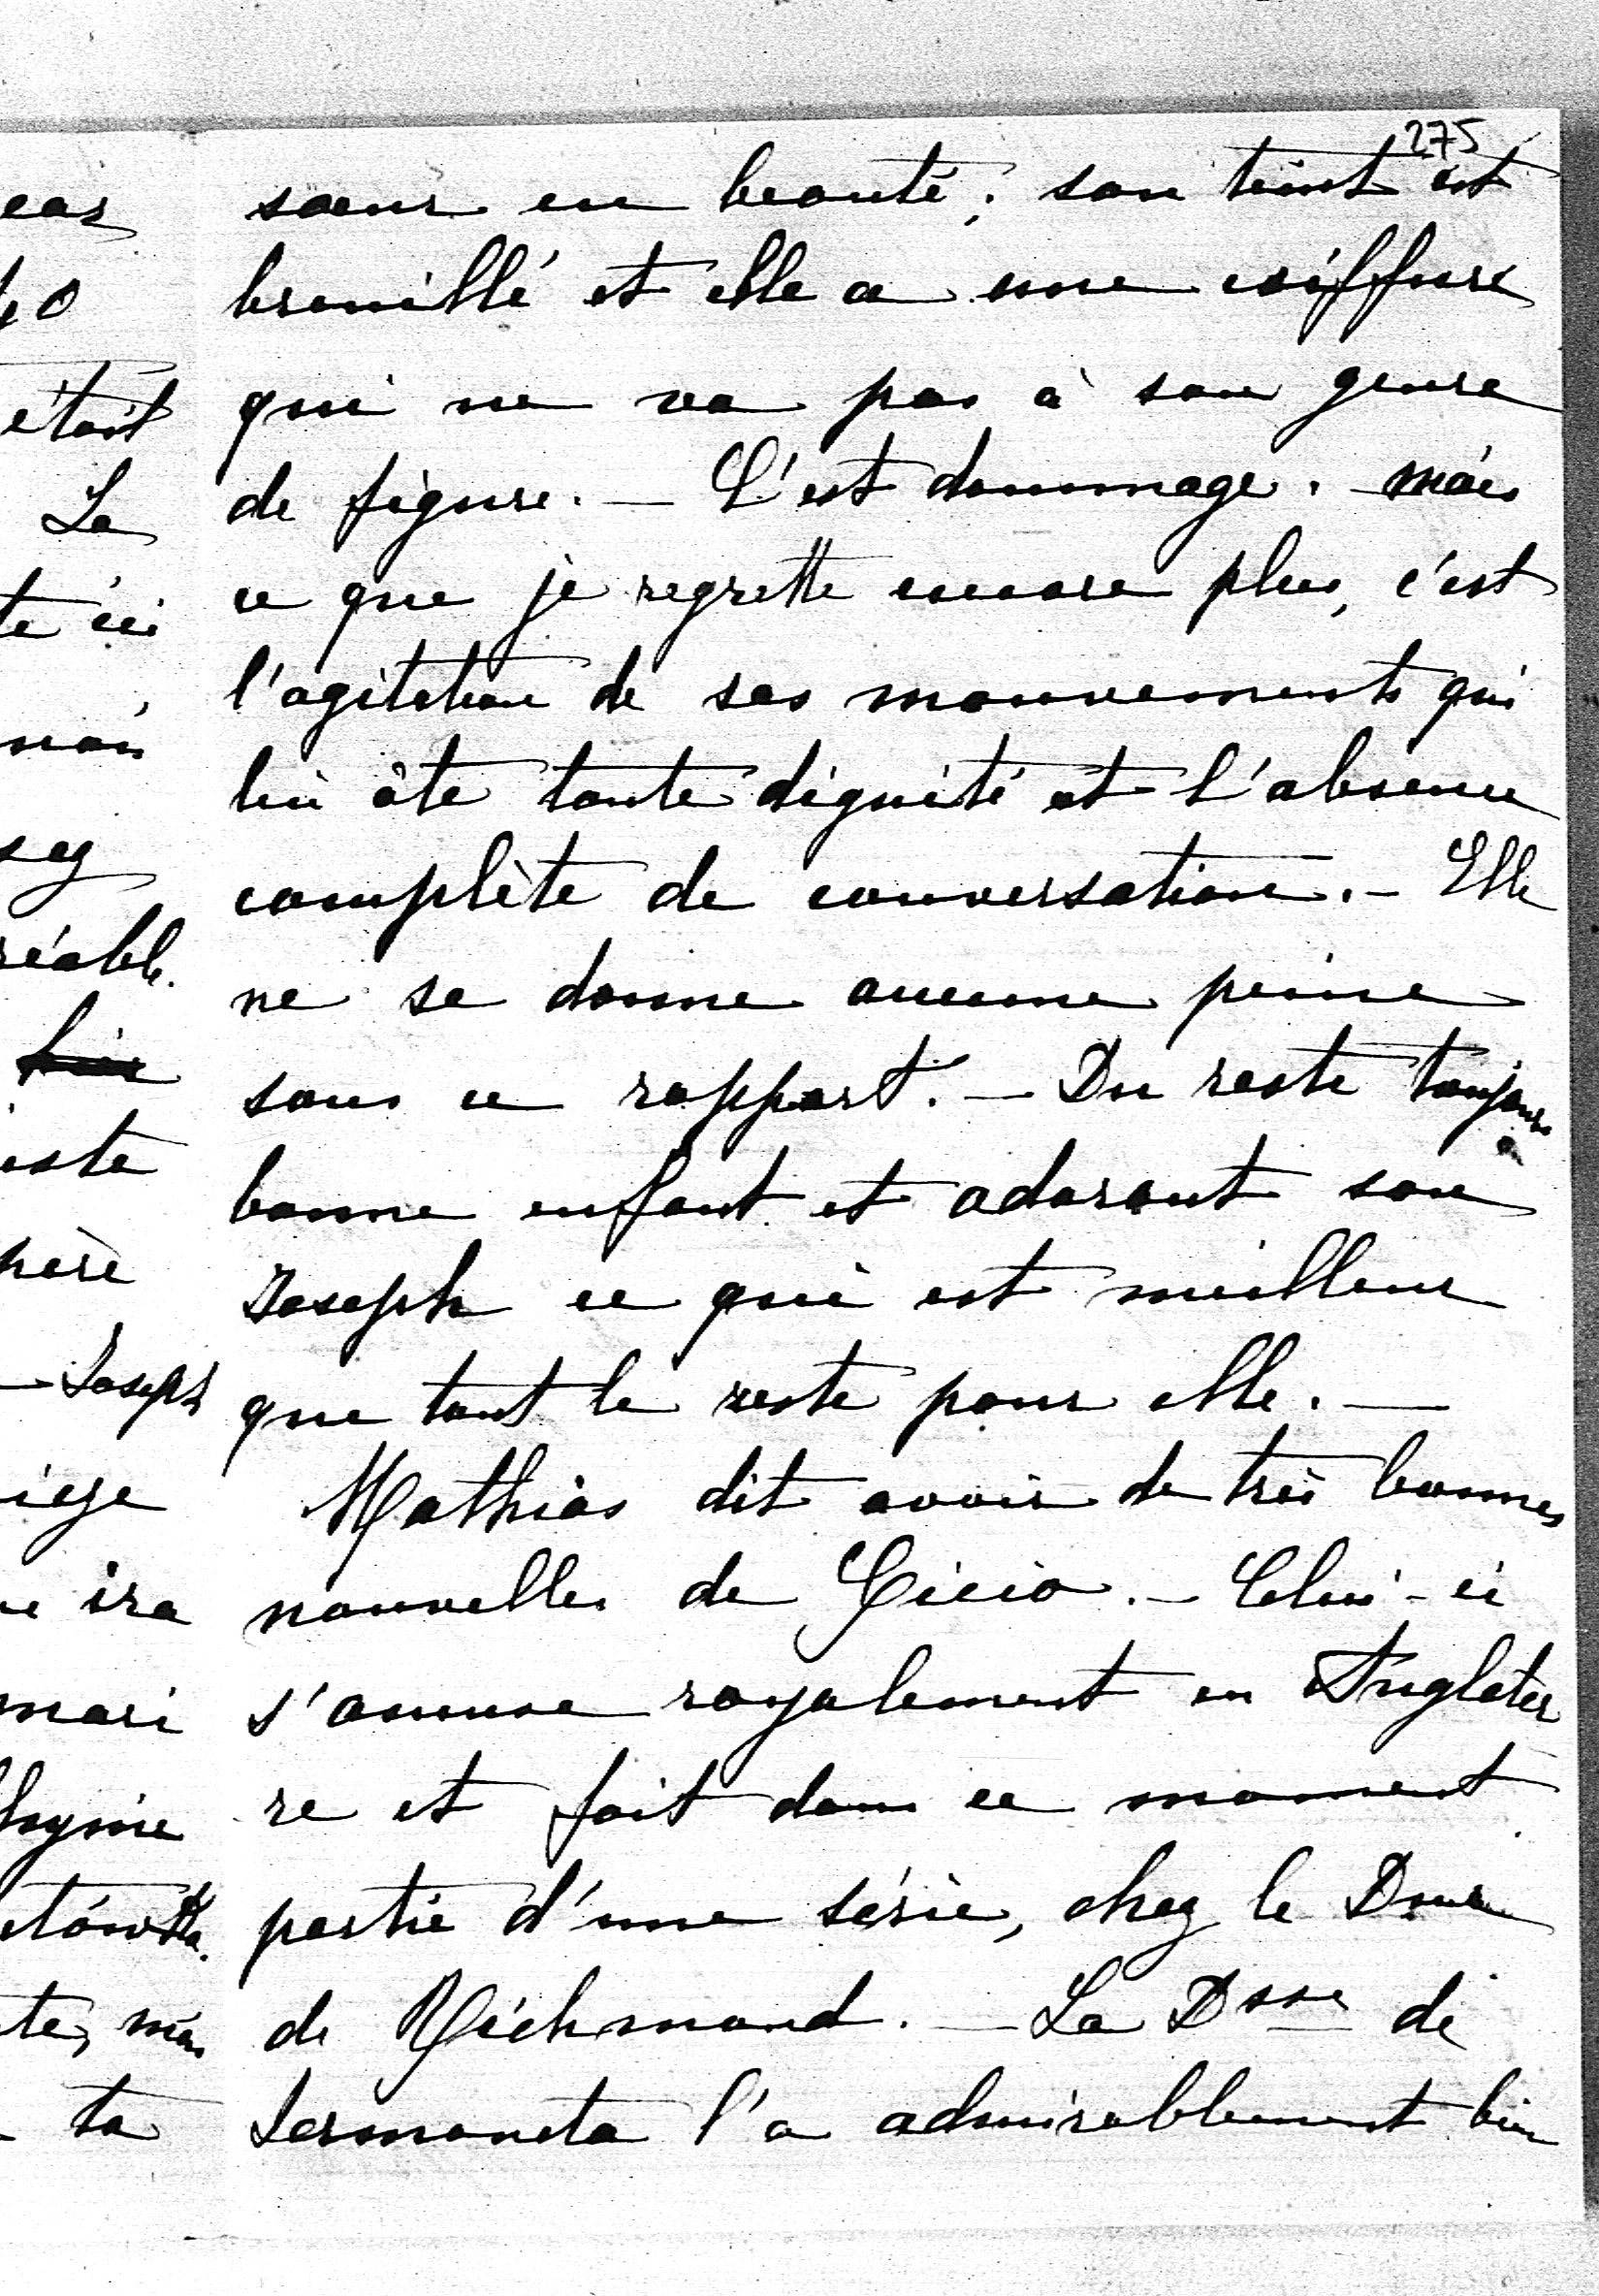 275
soeur en beauté; son teint est
brouillé et elle a une coiffure
qui ne va pas à son genre
de figure. — C'est dommage. - Mais
ce que je regrette encore plus, c'est
l'agitation de ses mouvements qui
lui ôte toute dignité et l'absence
complète de conversation. - Elle
ne se donne aucune peine
sous ce rapport. - Du reste toujours
bonne enfant et adorant son
Joseph ce qui est meilleur
que tout le reste pour elle. —
Mathias dit avoir de très bonnes
nouvelles de Cicio. - Celui-ci
s'amuse royalement en Angleter
re et fait dans ce moment
partie d'une série, chez le Duc
de Richmond. — La Dsse de
Sermoneta l'a admirablement bien